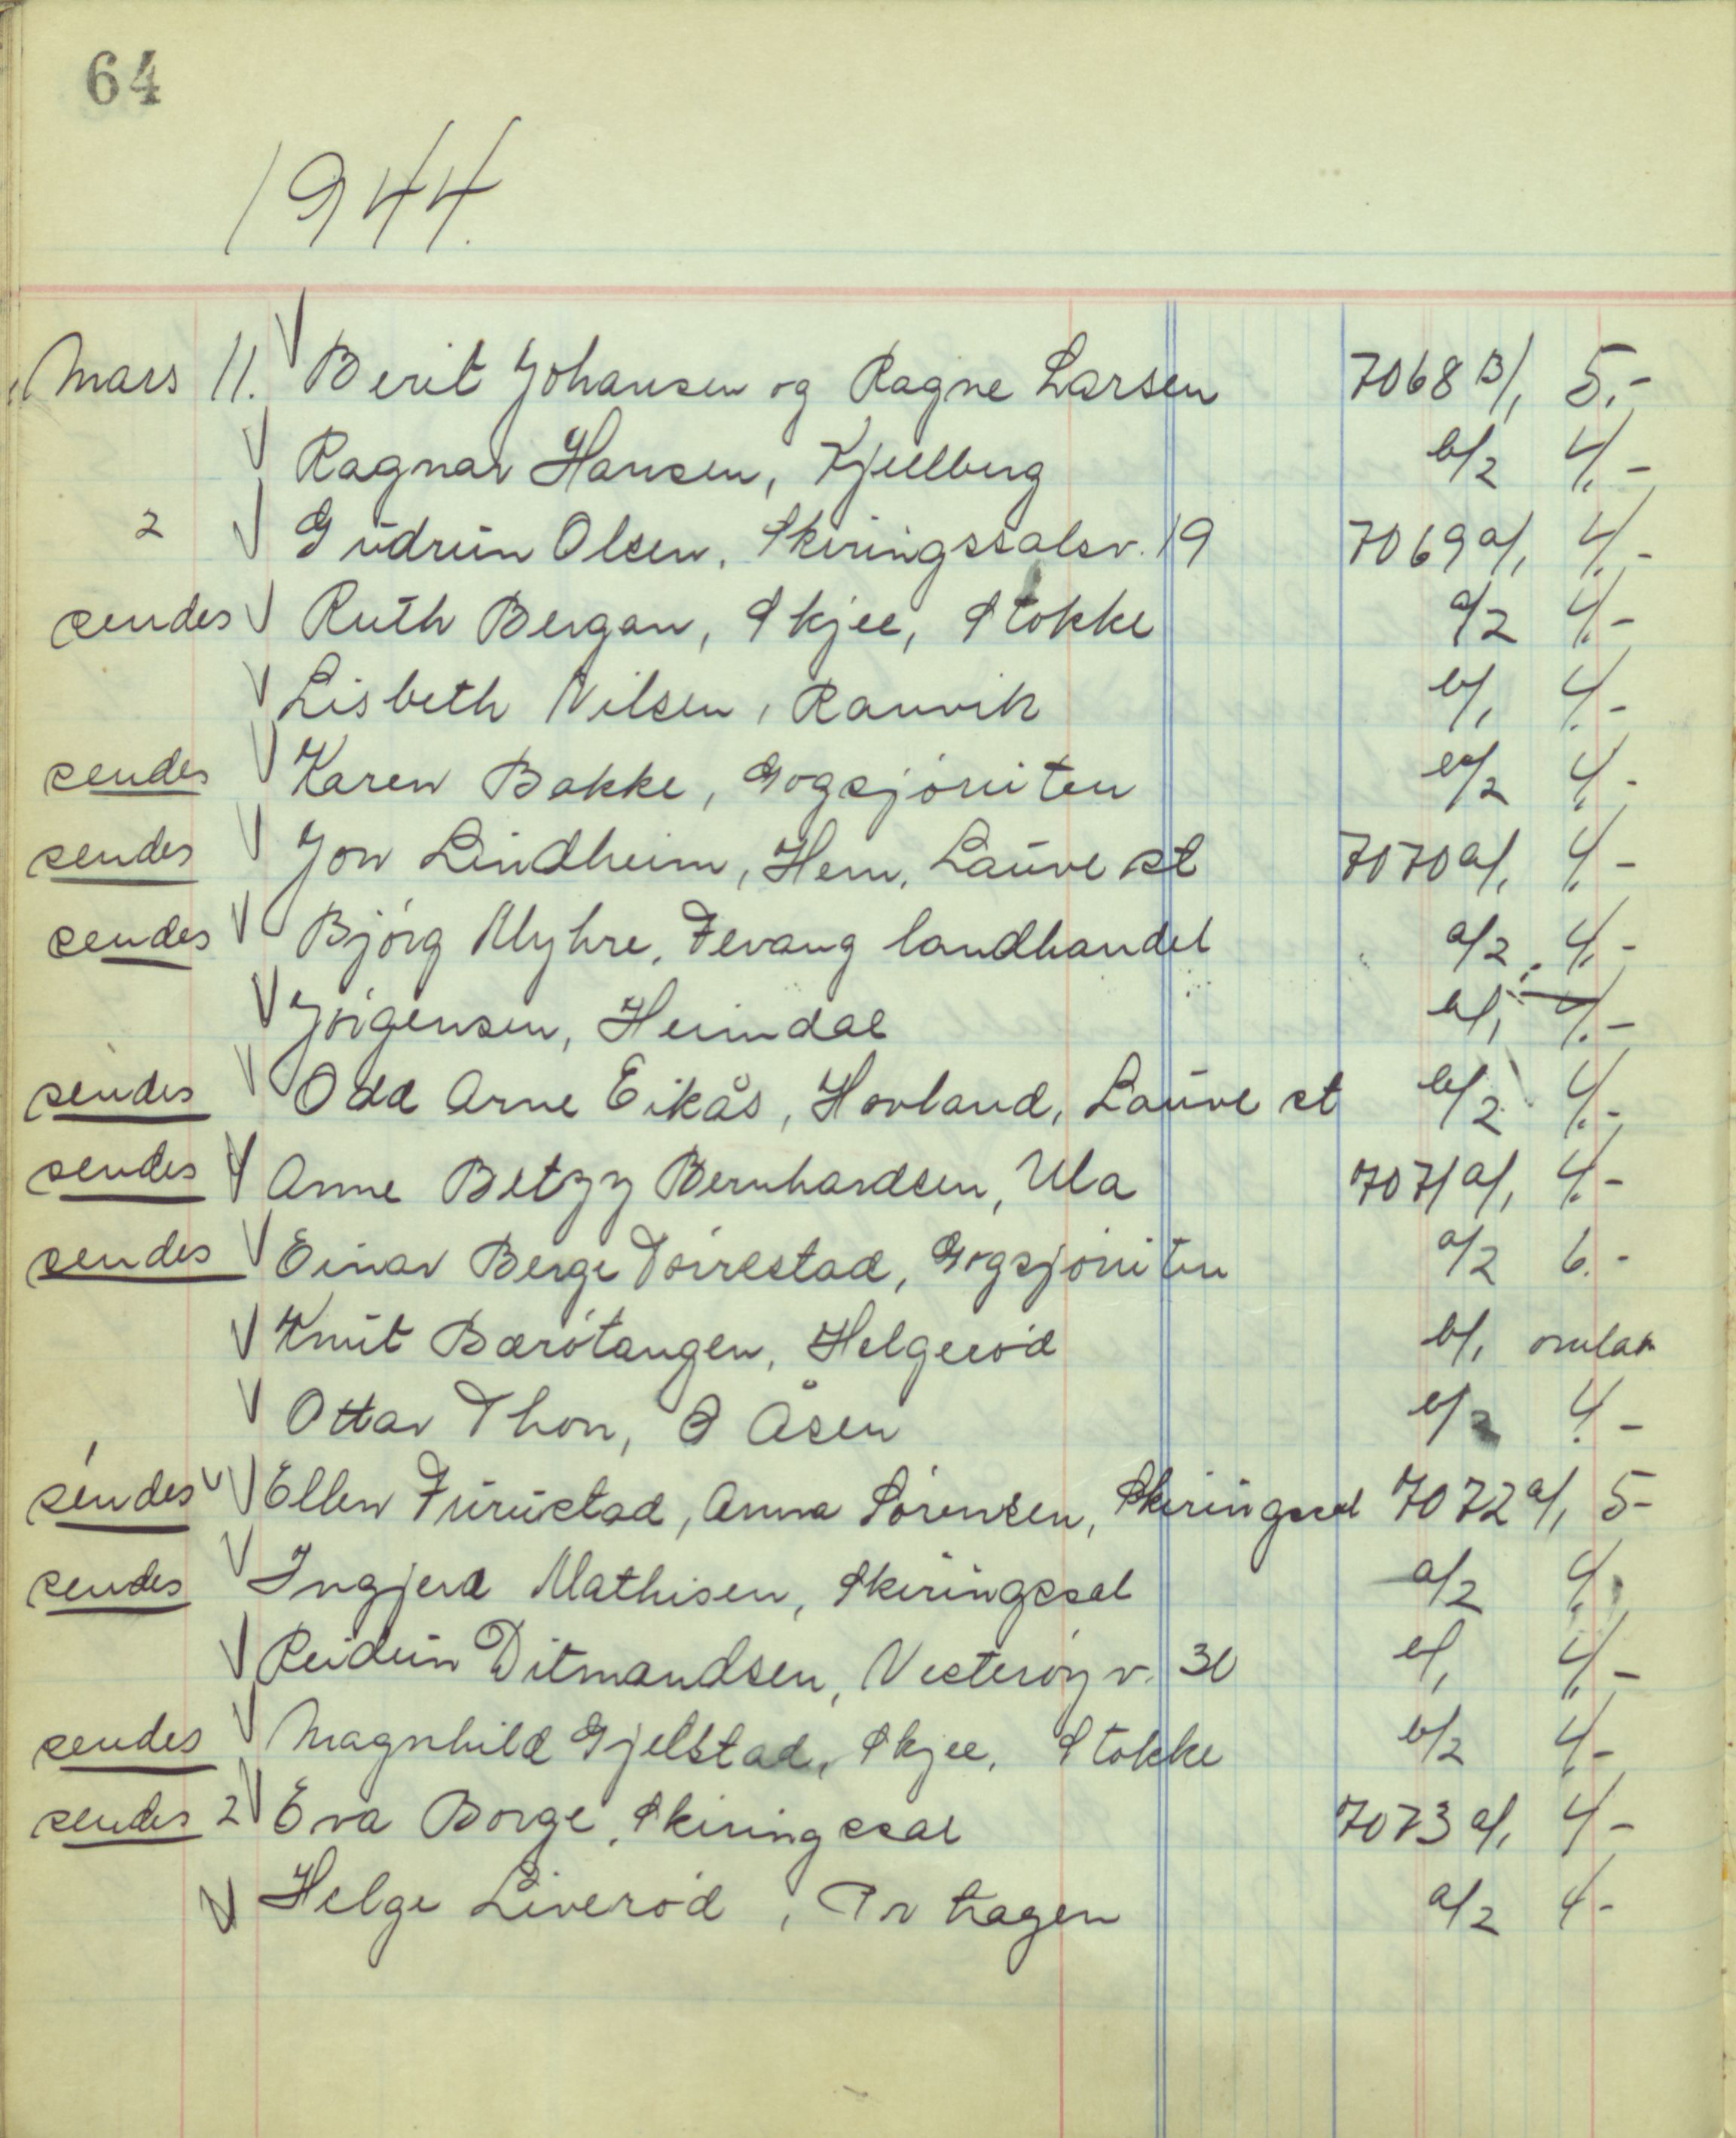 64
1944.
Mars 11. Berit Johansen og Ragne Larsen 7068 B/1 5.-
Ragnar Hansen, Kjellberg b/2 4.-
2 Gudrun Olsen, Skiringssalsv. 19 7069 a/1 4.-
sendes Ruth Bergan, Skjee, Stokke a/2 4.-
Lisbeth Nilsen, Ranvik b/1 4.-
sendes Karen Bakke, Gogsjøruten b/2 4.-
sendes Jon Lindheim, Hem, Lauve st 7070 a/1 4.-
sendes Bjørg Myhre, Fevang landhandel a/2 4.-
Jørgensen, Heimdal b/1 4.-
sendes Odd Arne Eikås, Hovland, Lauve st b/2 4.-
sendes Anne Betzy Bernhardsen, Ula 7071 a/1 4.-
sendes Einar Berge Tørrestad, Gogsjøruten a/2 6.-
Knut Barøtangen, Helgerød b/1 omlat
Ottar Thon, Åsen b/2 4.-
sendes Ellen Furustad, Anna Sørensen, Skiringssal 7072 a/1 5-
sendes Ingjerd Mathisen, Skiringssal a/2 4.
Reidun Ditmandsen, Vesterøy v. 30 b/1 4.-
sendes Magnhild Gjelstad, Skjee, Stokke b/2 4-
sendes 2 Eva Borge, Skiringssal 7073 a/1 4-
Helge Liverød, Pr hagen a/2 4-